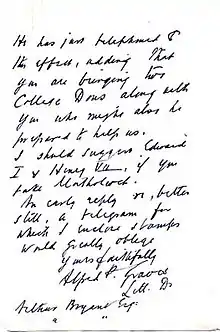 He has just telephoned to
this effect, adding that
you are bringing two
College Dons along with
you who might also be
prepared to help us.
I should suggest Edward
I & Henry VII, if you
take Matholwch.
An early reply or, better
still, a telegram for
which I enclose stamps
would greatly oblige
Yours faithfully
Alfred P. Graves
Litt. D.
Arthur Bryant Esq.
" "